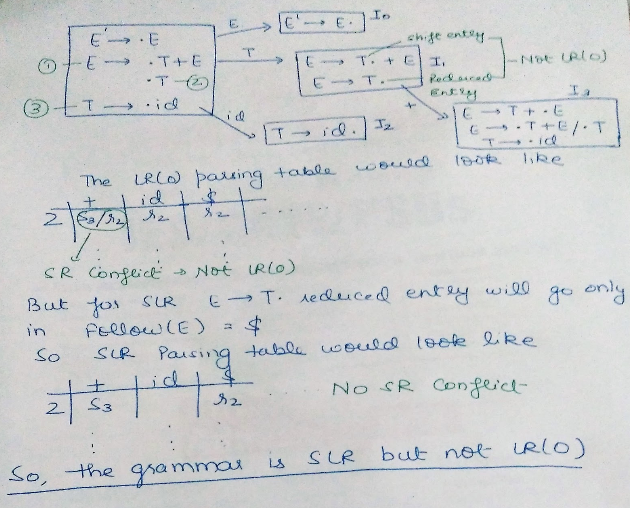 E' → E. I0
E
E' → .E
shift entry
① E → .T+E
T
E → T. + E I1
Not LR(0)
.T ②
E → T.
Reduced Entry
③ T → .id
+
I3
id
E → T + .E
T → id. I2
E → .T+E/.T
T → .id
The LR(0) parsing table would look like
+ id $
2 S3/r2 r2 r2 ......
SR Conflict → Not LR(0)
But for SLR E → T. reduced entry will go only
in Follow(E) = $
So SLR Parsing table would look like
+ id $
2 S3 r2 No SR Conflict
So, the grammar is SLR but not LR(0)